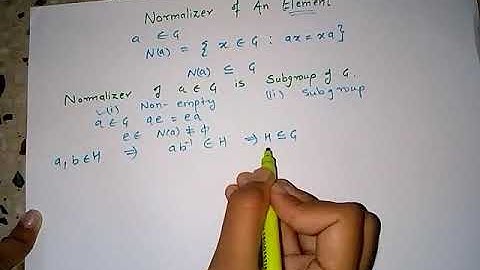 Normalizer of An Element
a ∈ G
N(a) = { x ∈ G : ax = xa }
N(a) ⊆ G
Normalizer of a ∈ G is Subgroup of G.
(i) Non-empty (ii) Subgroup
a ∈ G ae = ea
e ∈ N(a) ≠ ϕ
a, b ∈ H ⇒ ab⁻¹ ∈ H ⇒ H ⊆ G